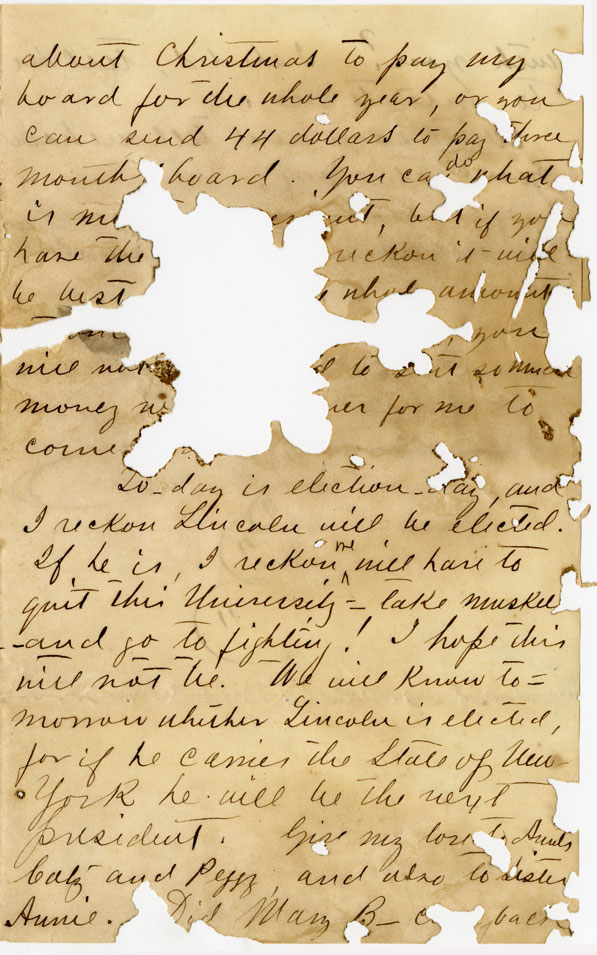 about Christmas to pay my
board for the whole year, or you
can send 44 dollars to pay three
months board. You can do what
is most, but if you
have the reckon it will
be best whole amount
you
will not to sent so much
money for me to
come
To-day is election-day, and
I reckon Lincoln will be elected.
If he is, I reckon we will have to
quit this University = take musket
-and go to fighting! I hope this
will not be. We will know to=
morrow whether Lincoln is elected,
for if he carries the State of New-
York he will be the next
president. Give my love to Aunts
Caty and Peggy, and also to sister
Annie. Did Mary B- back